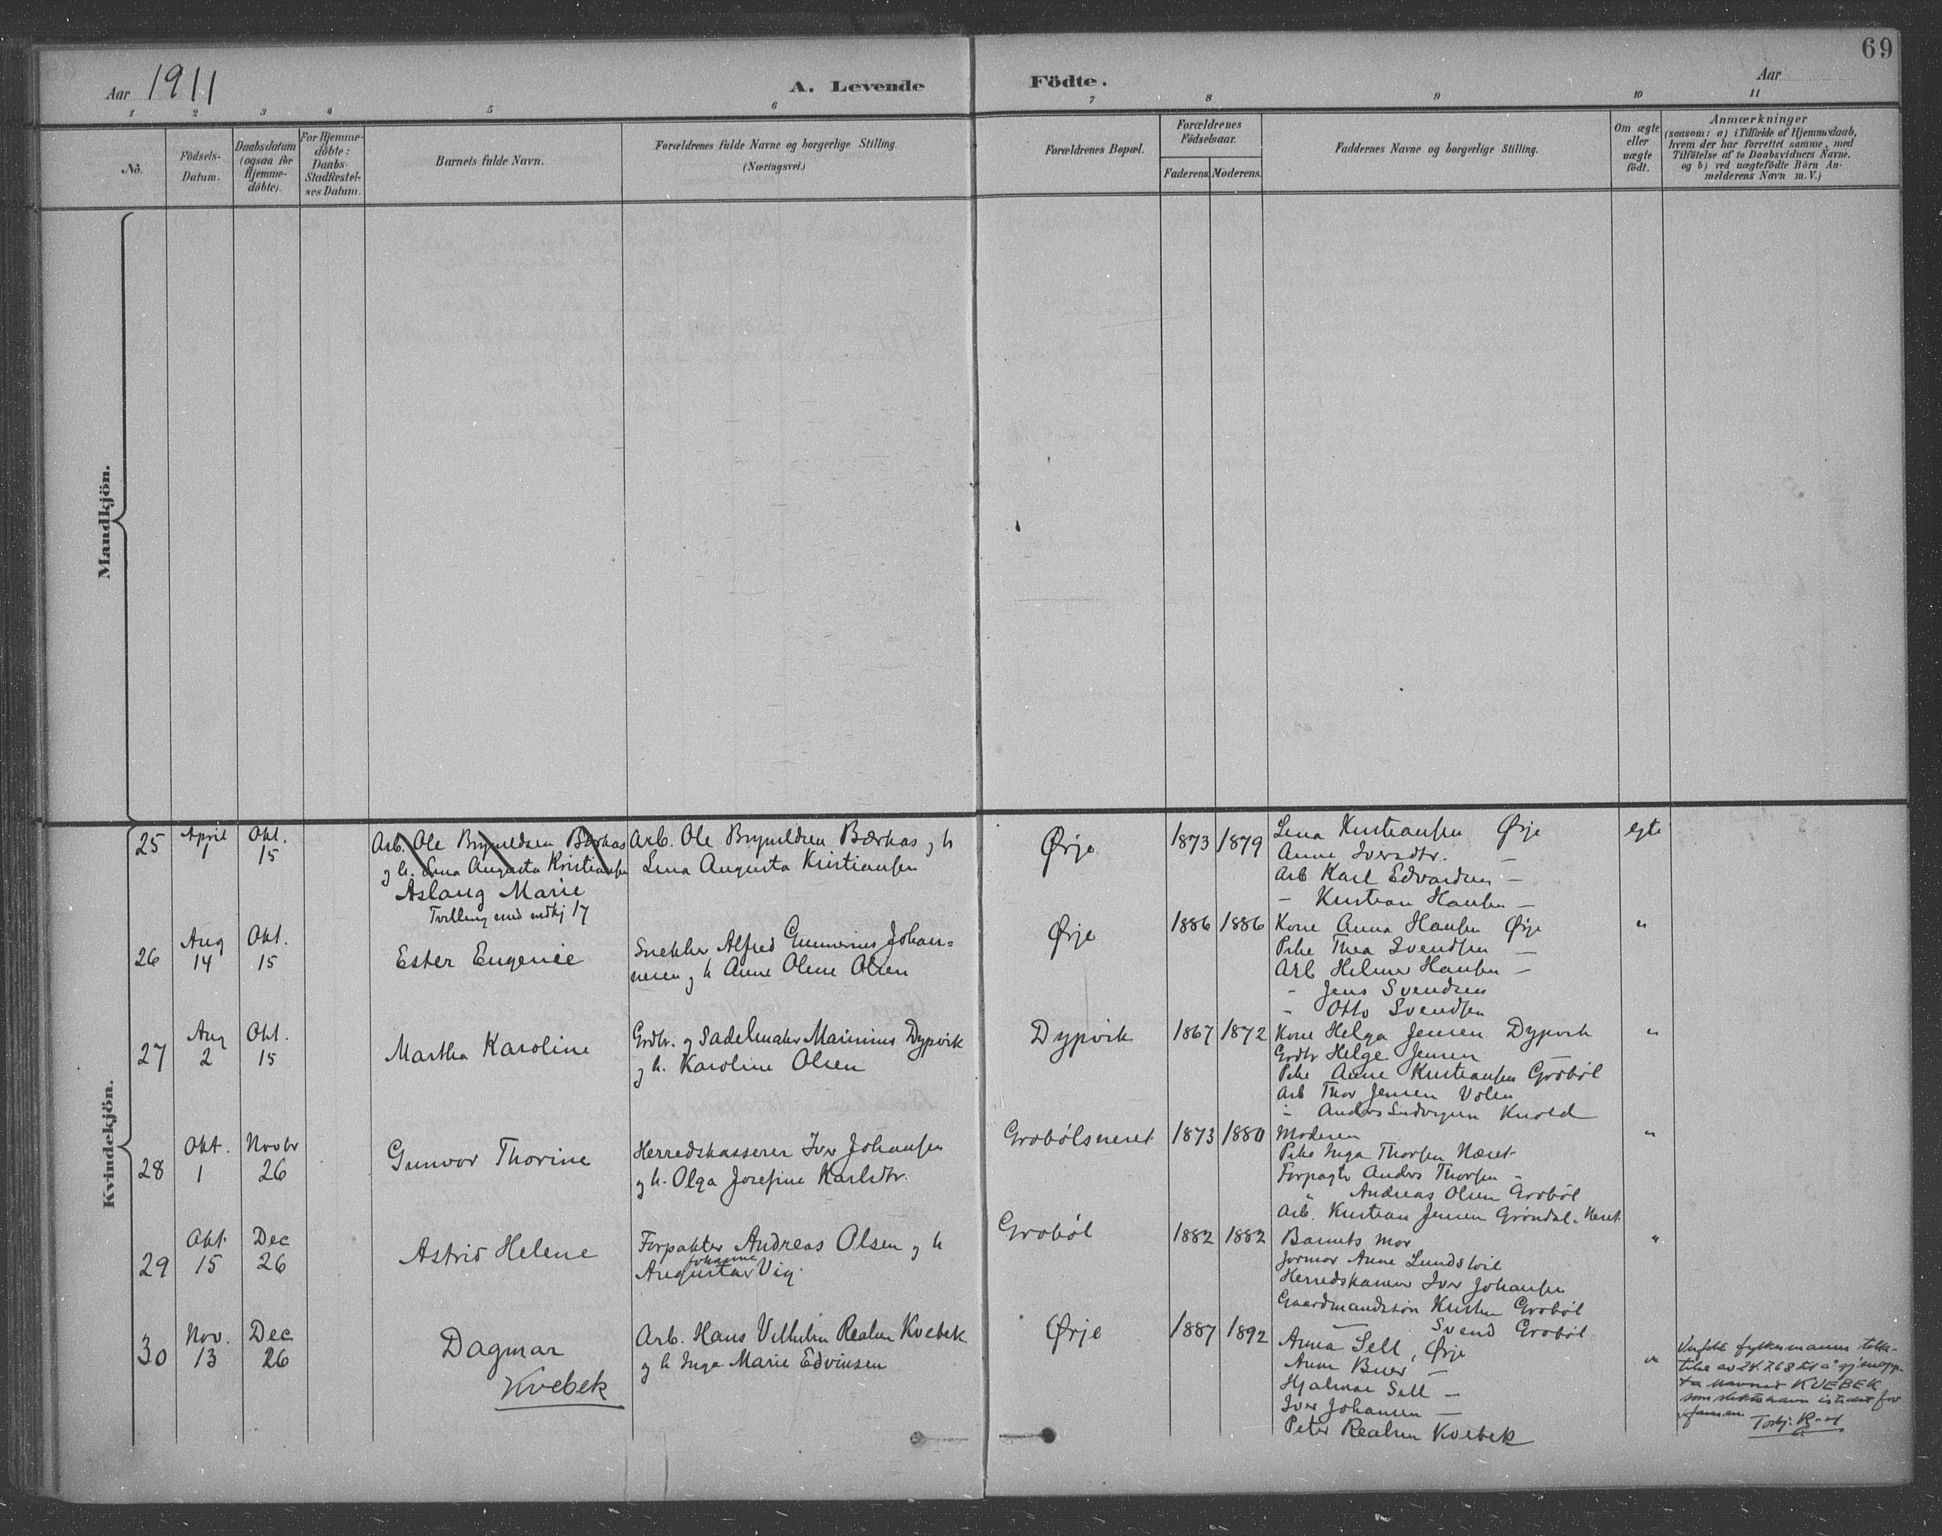 69
Aar 1911
A. Levende Födte.
Aar
1 2 3 4 5 6 7 8 9 10 11
No.
Födsels-
Datum.
Daabsdatum
(ogsaa för
Hjemme-
döbte).
For Hjemme-
döbte:
Daabs-
Stadfæstel-
ses Datum.
Barnets fulde Navn.
Forældrenes fulde Navne og borgerlige Stilling.
(Næringsvei.)
Forældrenes Bopæl.
Forældrenes
Födselsaar.
Faderens. Moderens.
Faddernes Navne og borgerlige Stilling.
Om ægte
eller
uægte
födt.
Anmærkninger
(saasom: a) i Tilfælde af Hjemmedaab,
hvem der har forrettet samme, med
Tilföielse af to Daabsvidners Navne,
og b) ved uægtefödte Börn An-
melderens Navn m. V.)
Mandkjön.
Kvindekjön.
25
April
1
Okt.
15
Arb. Ole Brynildsen Bærkas
og h. Lena Augusta Kristiansen
Aslaug Marie
Tvilling med mdkj 17
Arb. Ole Brynildsen Bærkas og h
Lena Augusta Kristiansen
Ørje
1873 1879
Lena Kristiansen Ørje
Anne Iversdtr. —
Arb Karl Edvardsen —
- Kristian Hansen —
egte
26
Aug
14
Okt.
15
Ester Eugenie
Snekker Alfred Gunnerius Johan=
nesen og h Anne Oline Olsen
Ørje
1886 1886
Kone Anna Hansen Ørje
Pike Thea Svendsen —
Arb Helmer Hansen —
- Jens Svendsen
- Otto Svendsen
"
27
Aug
2
Okt.
15
Martha Karoline
Grdbr. og Sadelmaker Marinius Dypvik
og h. Karoline Olsen
Dypvik
1867 1872
Kone Helga Jensen Dypvik
Grdbr Helge Jensen —
Pike Anne Kristiansen Grobøl
Arb Thor Jensen Volen
- Anders Ludvigsen Knold
"
28
Okt.
1
Novbr
26
Gunvor Thorine
Herredskasserer Iver Johansen
og h. Olga Josefine Karlsdtr.
Grobølsneret
1873 1880
Moderen
Pike Inga Thorsen Næret
Forpagter Anders Thorsen -
" Andreas Olsen Grobøl
Arb. Kristian Jensen Grøndal. Neret
"
29
Okt.
15
Dec
26
Astrid Helene
Forpakter Andreas Olsen og h
Johanne
Augusta Vig.
Grobøl
1882 1882
Barnets mor
Jormor Anne Lundstvil
Herredskasser Iver Johansen
Gaardmandssøn Kristen Grobøl
— Svend Grobøl
"
30
Nov.
13
Dec
26
Dagmar
Kvebek
Arb. Hans Vilhelm Realsen Kvebek
og h Inga Marie Edvinsen
Ørje
1887 1892
Anna Sell, Ørje
Anne Buer —
Hjalmar Sell —
Iver Johansen —
Peter Realsen Kvebek
"
fylkesmannens tilla-
telse av 24.7.68 til å gjenopp-
ta navnet KVEBEK
som slektsnavn istedet for
Jansen